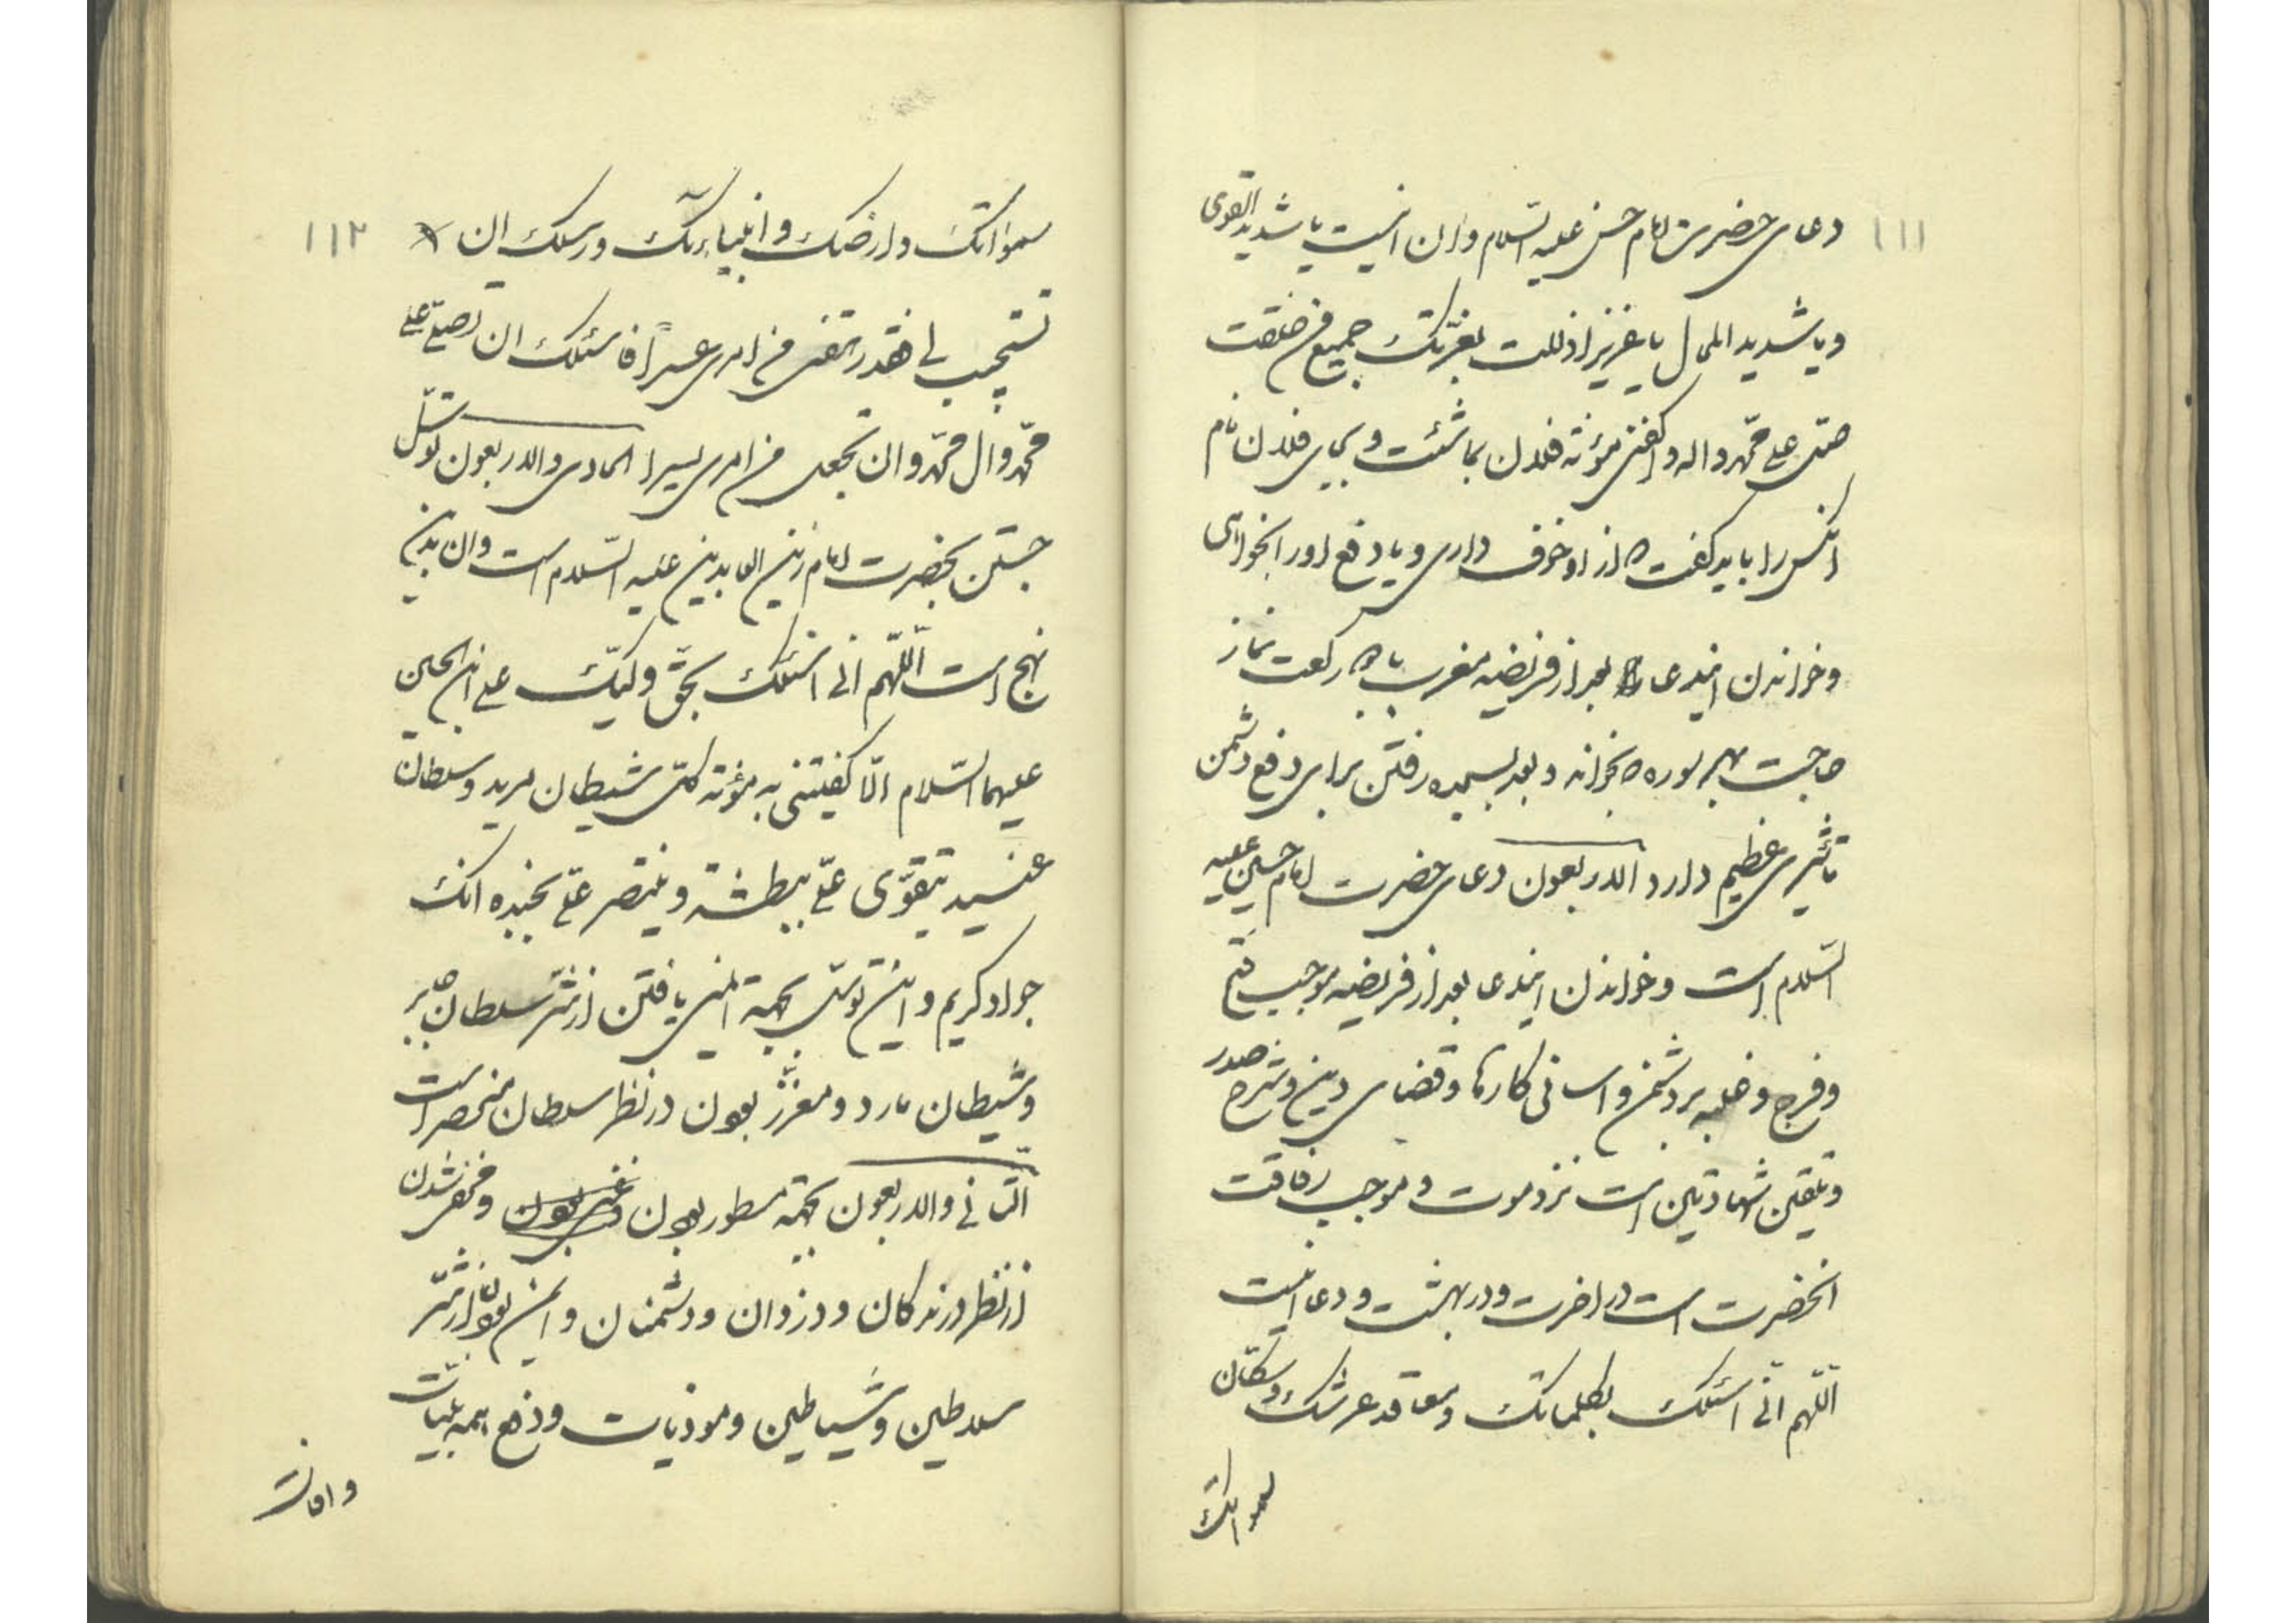 ۱۱۱
دعای حضرت امام حسن علیه السلام و ان اینست یا شدید القوی
و یا شدید المحال یا عزیز اذللت بعزتک جمیع من خلقت
صل علی محمد و اله و اکفنی مؤنة فلان بما شئت و بجای فلان نام
انکس را باید گفت که از او خوف داری و یا دفع او را بخواهی
و خواندن ایندعا بعد از فریضه مغرب یا رکعت نماز
حاجت بهر سوره که بخواند و بعد بسجده رفتن برای دفع دشمن
تاثیری عظیم دارد الاربعون دعای حضرت امام حسین علیه
السلام است و خواندن ایندعا بعد از فریضه موجب فتح
و فرج و غلبه بر دشمن و اسانی کارها و قضای دین و شرح صدر
و تلقین شهادتین است نزد موت و موجب رفاقت
انحضرت است در اخرت و در بهشت و دعا اینست
اللهم انی اسئلک بکلماتک و معاقد عرشک و سکان
سمواتک
۱۱۲
سمواتک و ارضک و انبیاءک و رسلک ان
تستجیب لی فقد رهقنی من امری عسراً فاسئلک ان تصلی علی
محمد و ال محمد و ان تجعل من امری یسرا الحادی و الاربعون توسل
جستن بحضرت امام زین العابدین علیه السلام است و ان بدین
نهج است اللهم انی اسئلک بحق ولیک علی ابن الحسین
علیهما السلام الا کفیتنی به مؤنة کل شیطان مرید و سلطان
عنید یتقوی علی ببطشه و ینتصر علی بجنده انک
جواد کریم و این توسل بجهة ایمنی یافتن از شر سلطان جابر
و شیطان مارد و معزز بودن در نظر سلطان منحصر است
الثانی و الاربعون بجهة مستور بودن و مخفی شدن
از نظر درندگان و دزدان و دشمنان و ایمن بودن از شر
سلاطین و شیاطین و موذیات و دفع همه بلیات
و افات